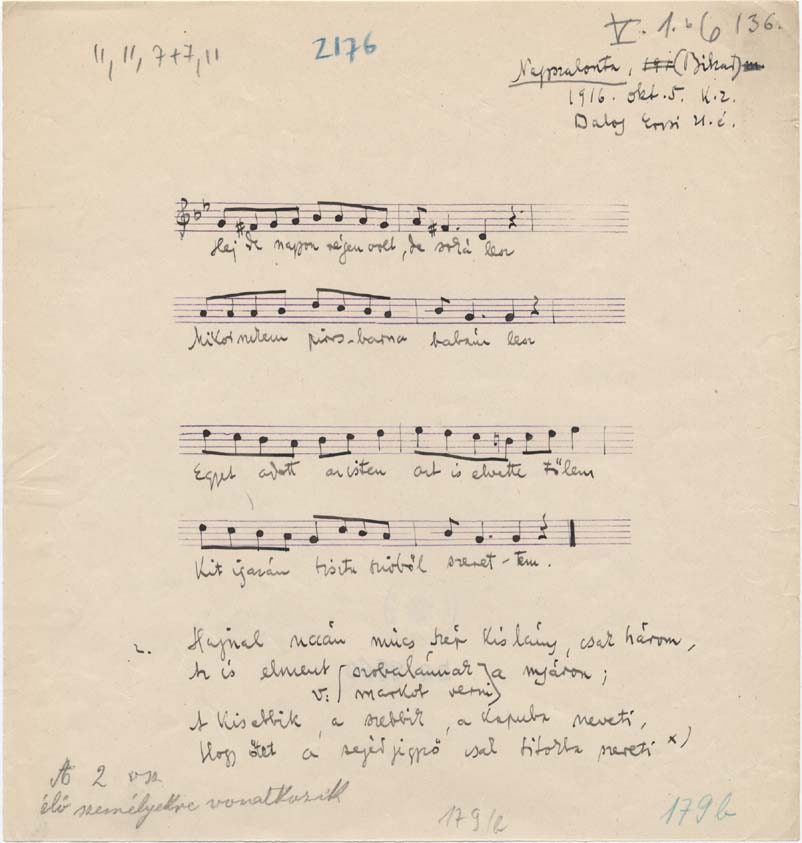 11, 11, 7+7, 11
2176
V. 1. b 6 /36.
Nagyszalonta, (Bihar)
1916. okt. 5. K. Z.
Dalos Erzsi 21. é.
Hej de nagyon régen volt, de soká lesz
Mikor nekem piros-barna babám lesz
Egyet adott az isten azt is elvette tőlem
Kit igazán tiszta szivből szeret-tem.
2. Hajnal uccán nincs szép kislány, csak három,
Az is elment szobalánnak a nyáron;
v: markot verni
A kisebbik, a szebbik, a kapuba neveti,
Hogy őtet a segédjegyző csak titokba szereti x)
A 2 vsz
élő személyekre vonatkozik
179/b
179b